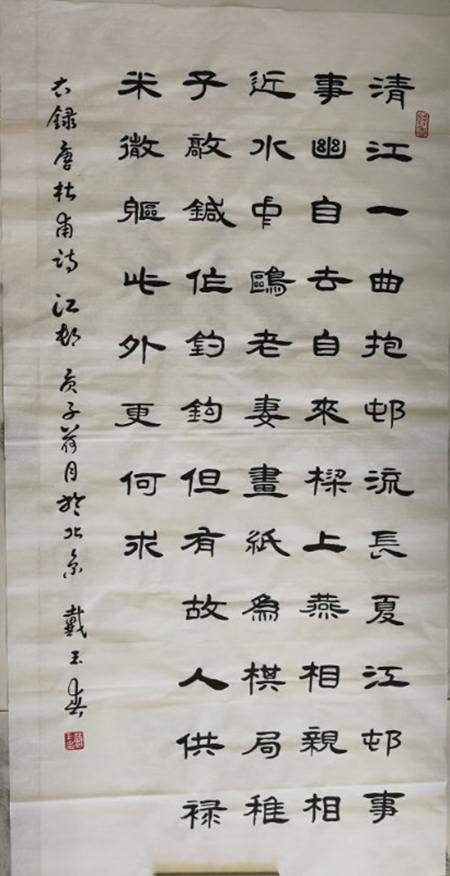 清江一曲抱邨流長夏江邨事
事幽自去自來樑上燕相親相
近水中鷗老妻畫紙為棋局稚
子敲鍼作釣鉤但有故人供禄
米微軀此外更何求
右錄唐杜甫詩江邨 庚子荷月於北京 戴玉